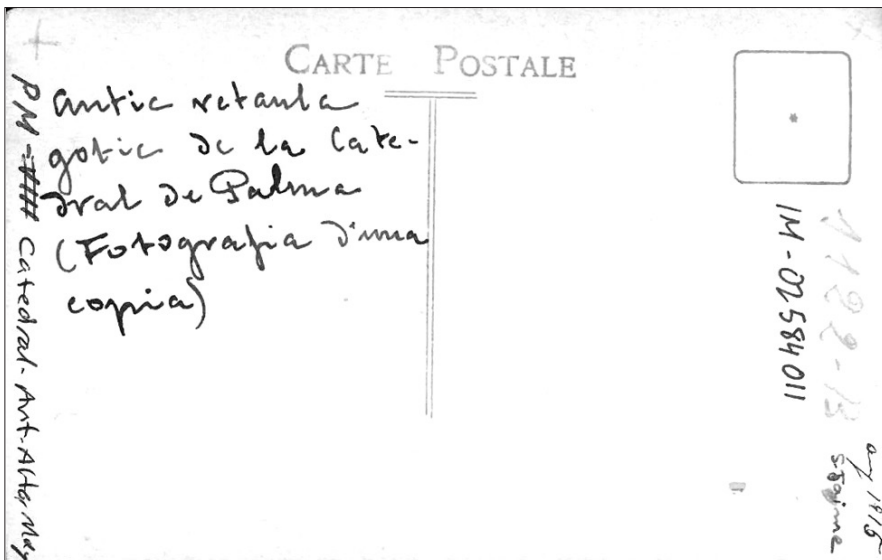 CARTE POSTALE
antic retaula
gotic de la Cate-
dral de Palma
(Fotografia d'una
copia)
PM - Catedral - Ant. Altar May
IM-02584011
1122-13
any 1915